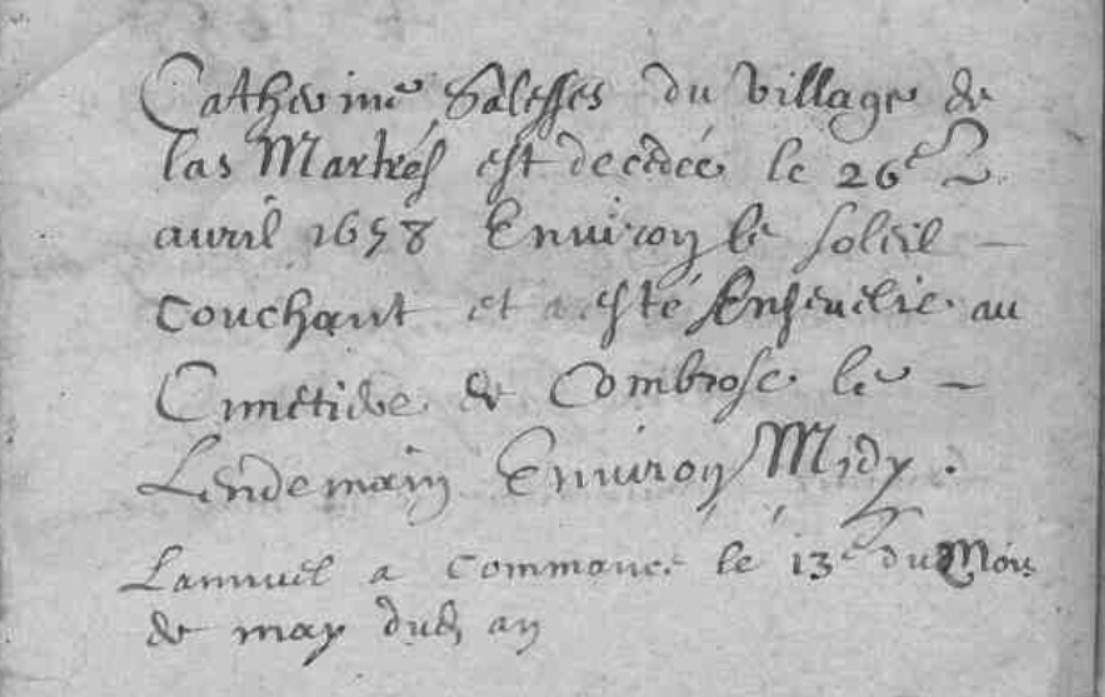 Catherine Salesses du village de
las Martres est decedée le 26e D
auvril 1658 Enuiron le soleil
couchant et a esté Enseuelie au
Cimetiere de Combrose le
Lendemain Enuiron Midy.
Lannuel a commance le 13e du Mois
de may dud an